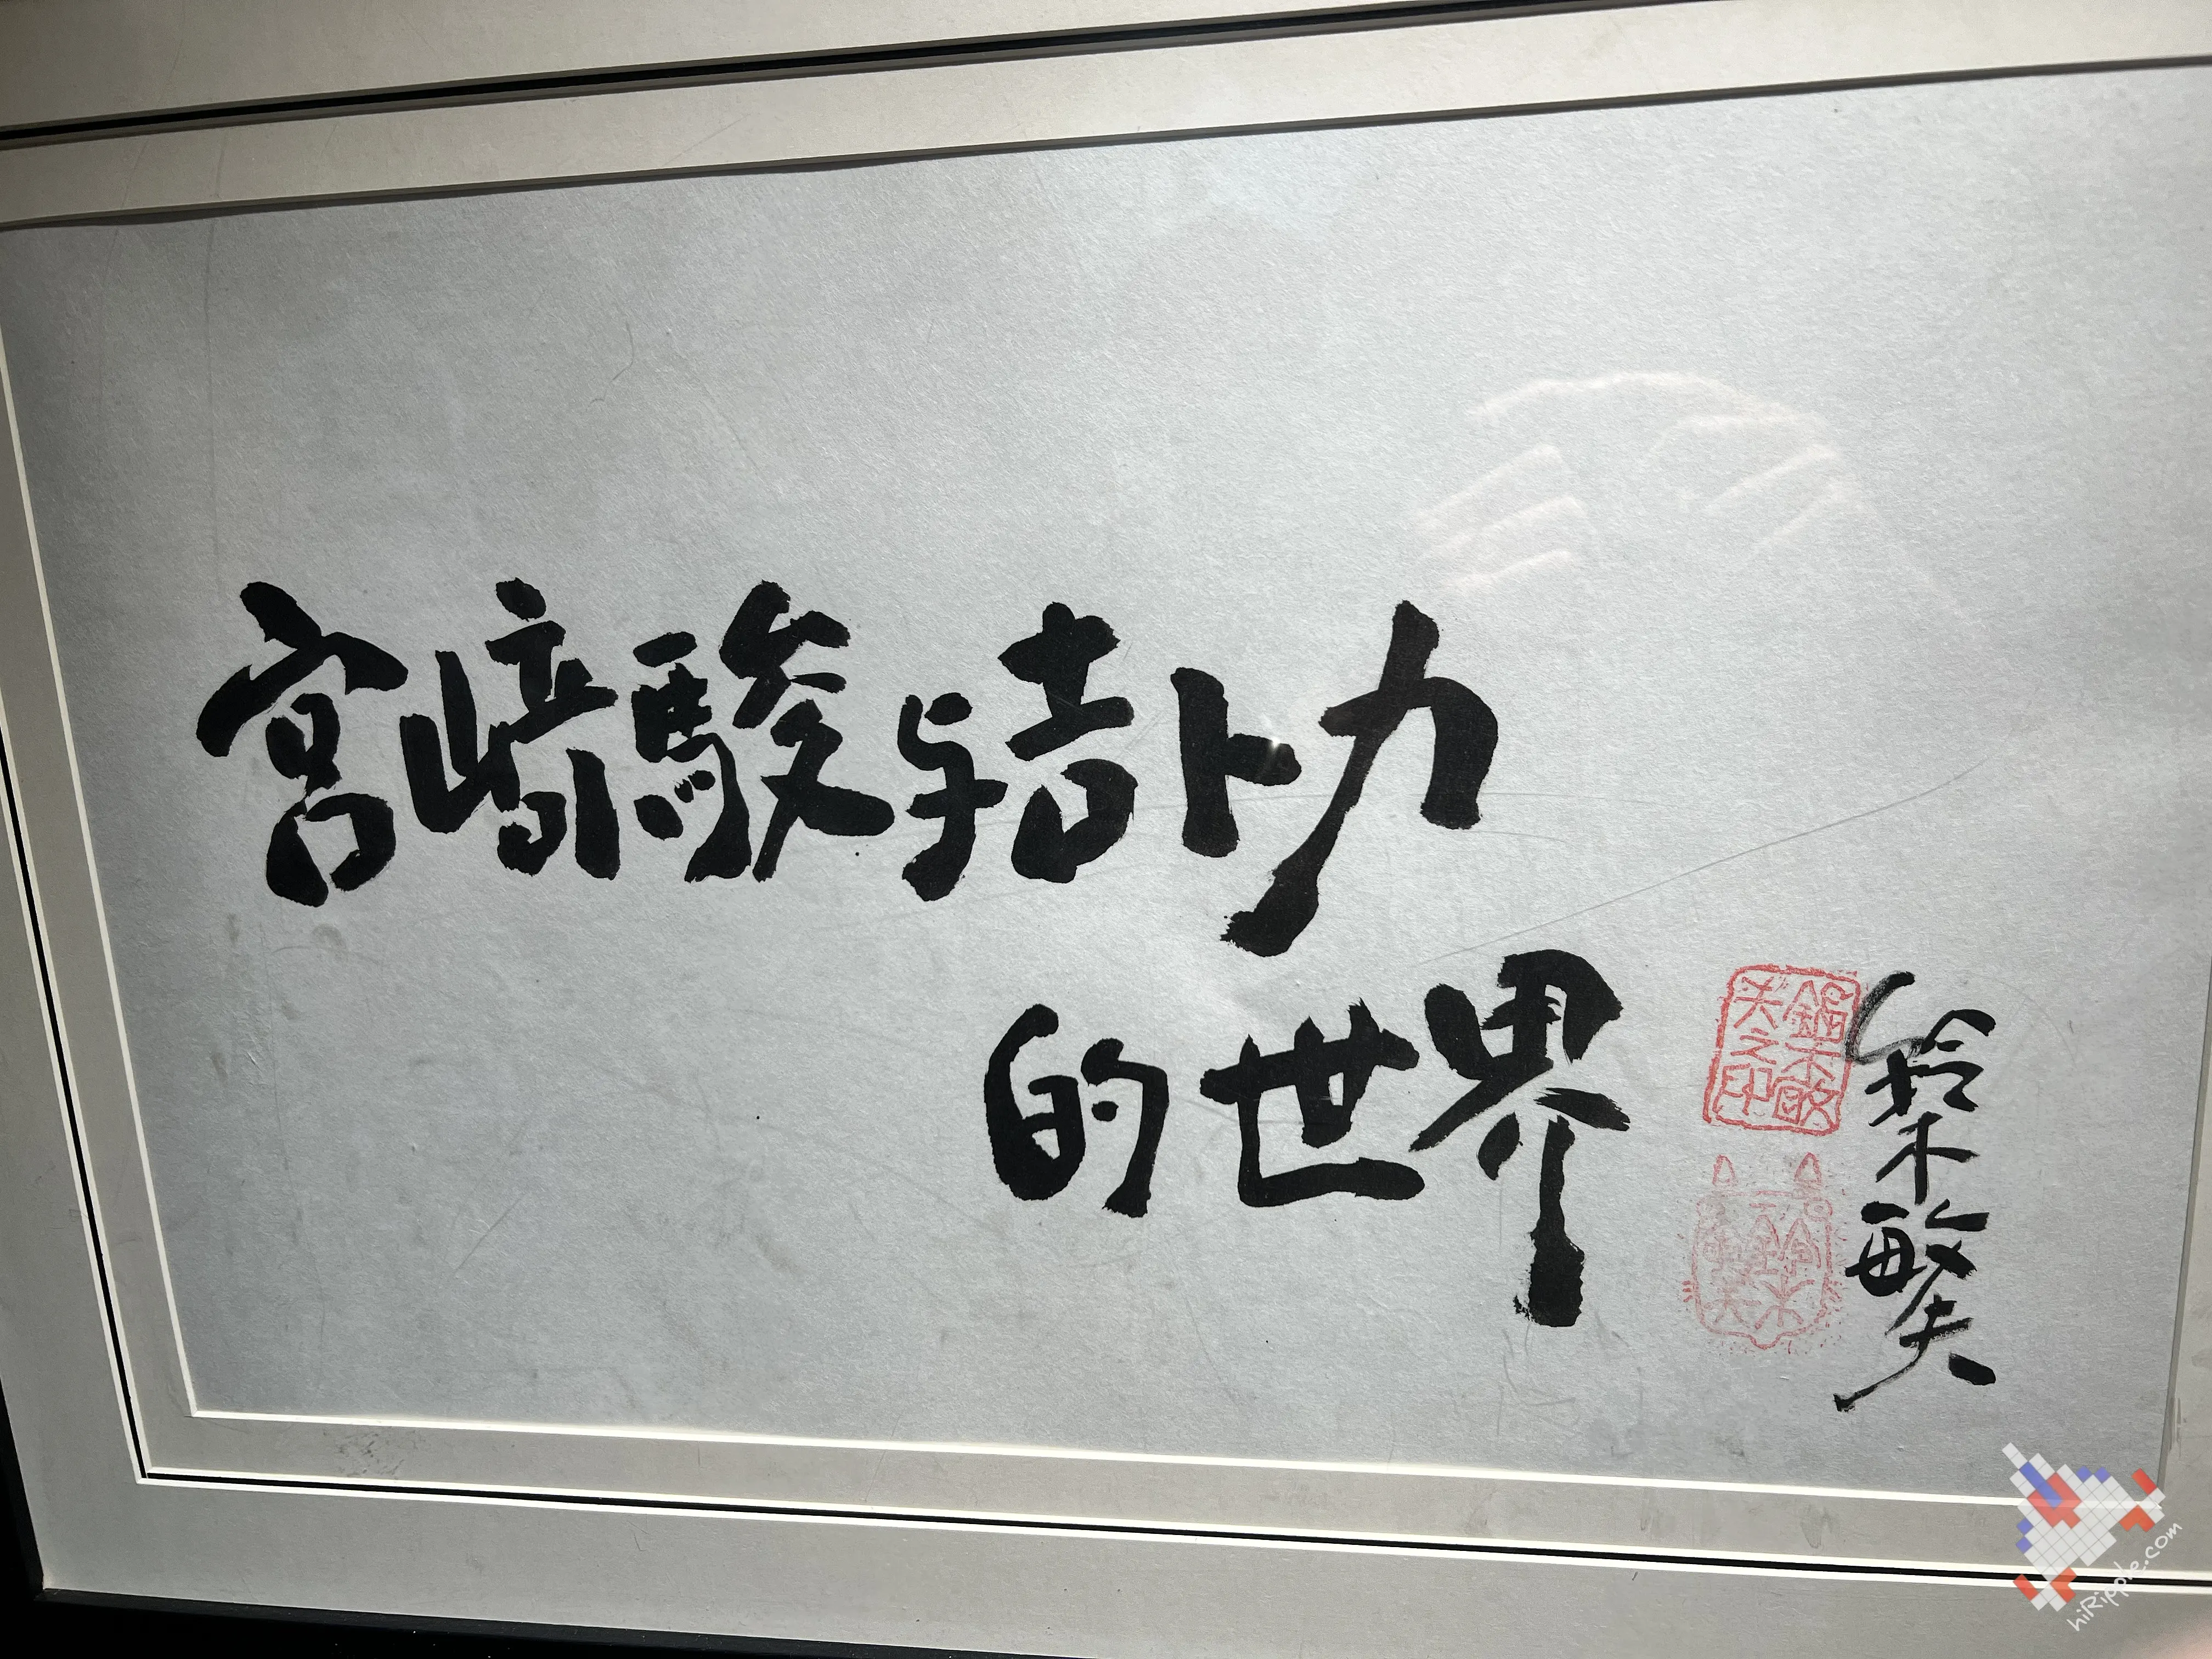 宮﨑駿与吉卜力
的世界
鈴木敏夫
鈴木敏
夫之印
鈴木
敏夫
hiRipple.com